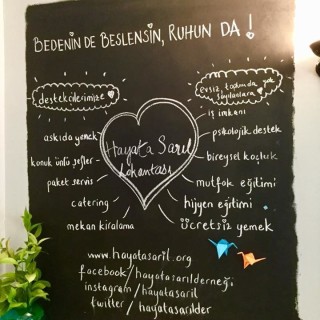 BEDENİN DE BESLENSİN, RUHUN DA!
destekçilerimize
askıda yemek
konuk ünlü şefler
paket servis
catering
mekan kiralama
Hayata Sarıl
Lokantası
evsiz, toplumda yok
sayılanlara
iş imkanı
psikolojik destek
bireysel koçluk
mutfak eğitimi
hijyen eğitimi
ücretsiz yemek
www.hayatasaril.org
facebook/hayatasarılderneği
instagram/hayatasaril
twitter/hayatasarılder